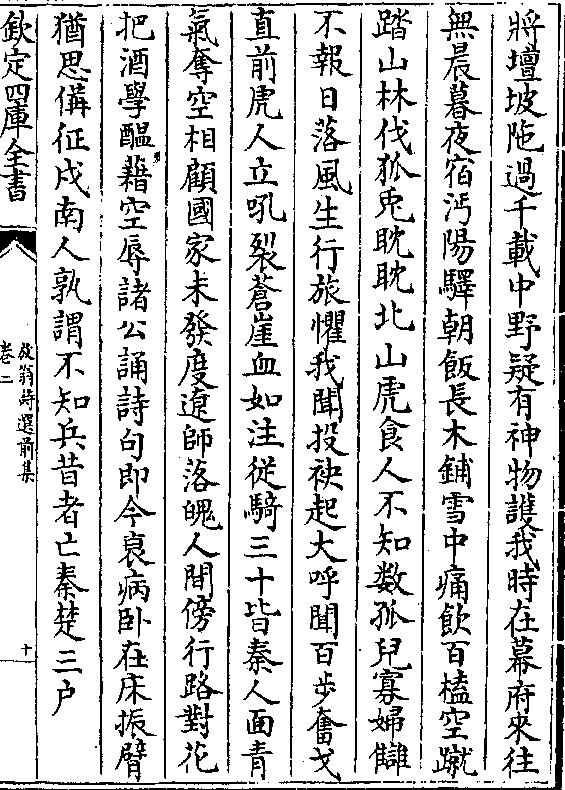 將壇坡陁過千載中野疑有神物護我時在幕府來往
無晨暮夜宿沔陽驛朝飯長木鋪雪中痛飲百榼空蹴
踏山林伐狐兎耽耽北山虎食人不知數孤兒寡婦讎
不報日落風生行旅懼我聞投袂起大呼聞百步奮戈
直前虎人立吼裂蒼崖血如注從騎三十皆秦人面青
氣奪空相顧國家未發度遼師落魄人間傍行路對花
把酒學醞藉空辱諸公誦詩句即今衰病卧在床振臂
猶思備征戍南人孰謂不知兵昔者亡秦楚三户
欽定四庫全書
放翁詩選前集
卷二
十